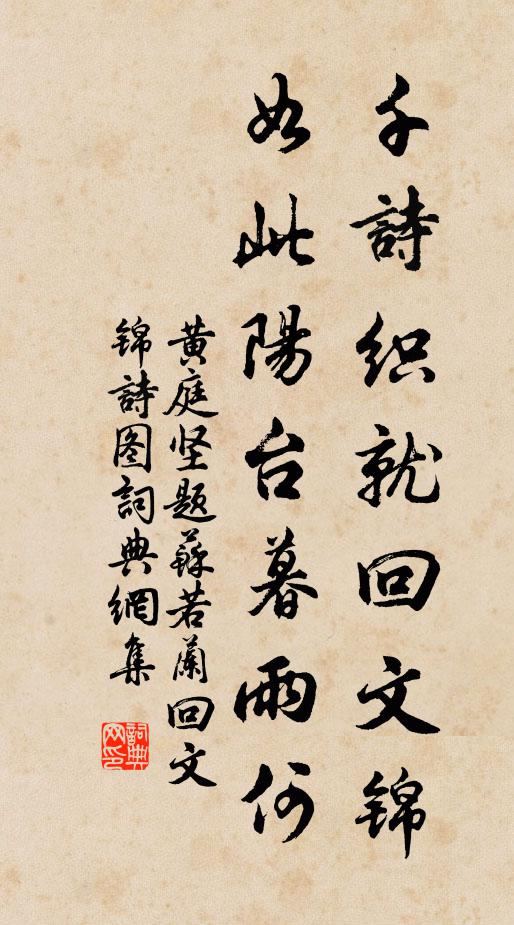 千詩织就回文锦
如此陽台暮雨何
黄庭坚题蘇若蘭回文
锦詩图詞典網集
詞典网印